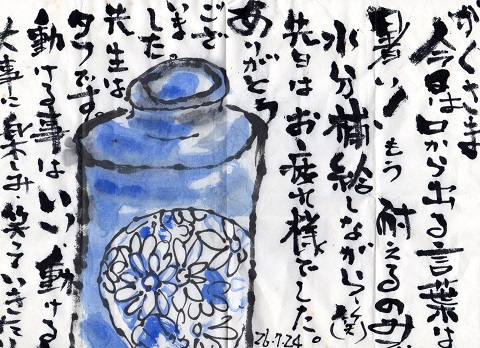 かくさま
今日は口から出る言葉は
暑い!もう耐えるのみ
水分補給しながら(笑)
先日はお疲れ様でした。
ありがとう
ござ
いま
した。
先生は
タフです。
動ける事はいい、動ける
大事に楽しみ、笑っていきたい
26.7.24